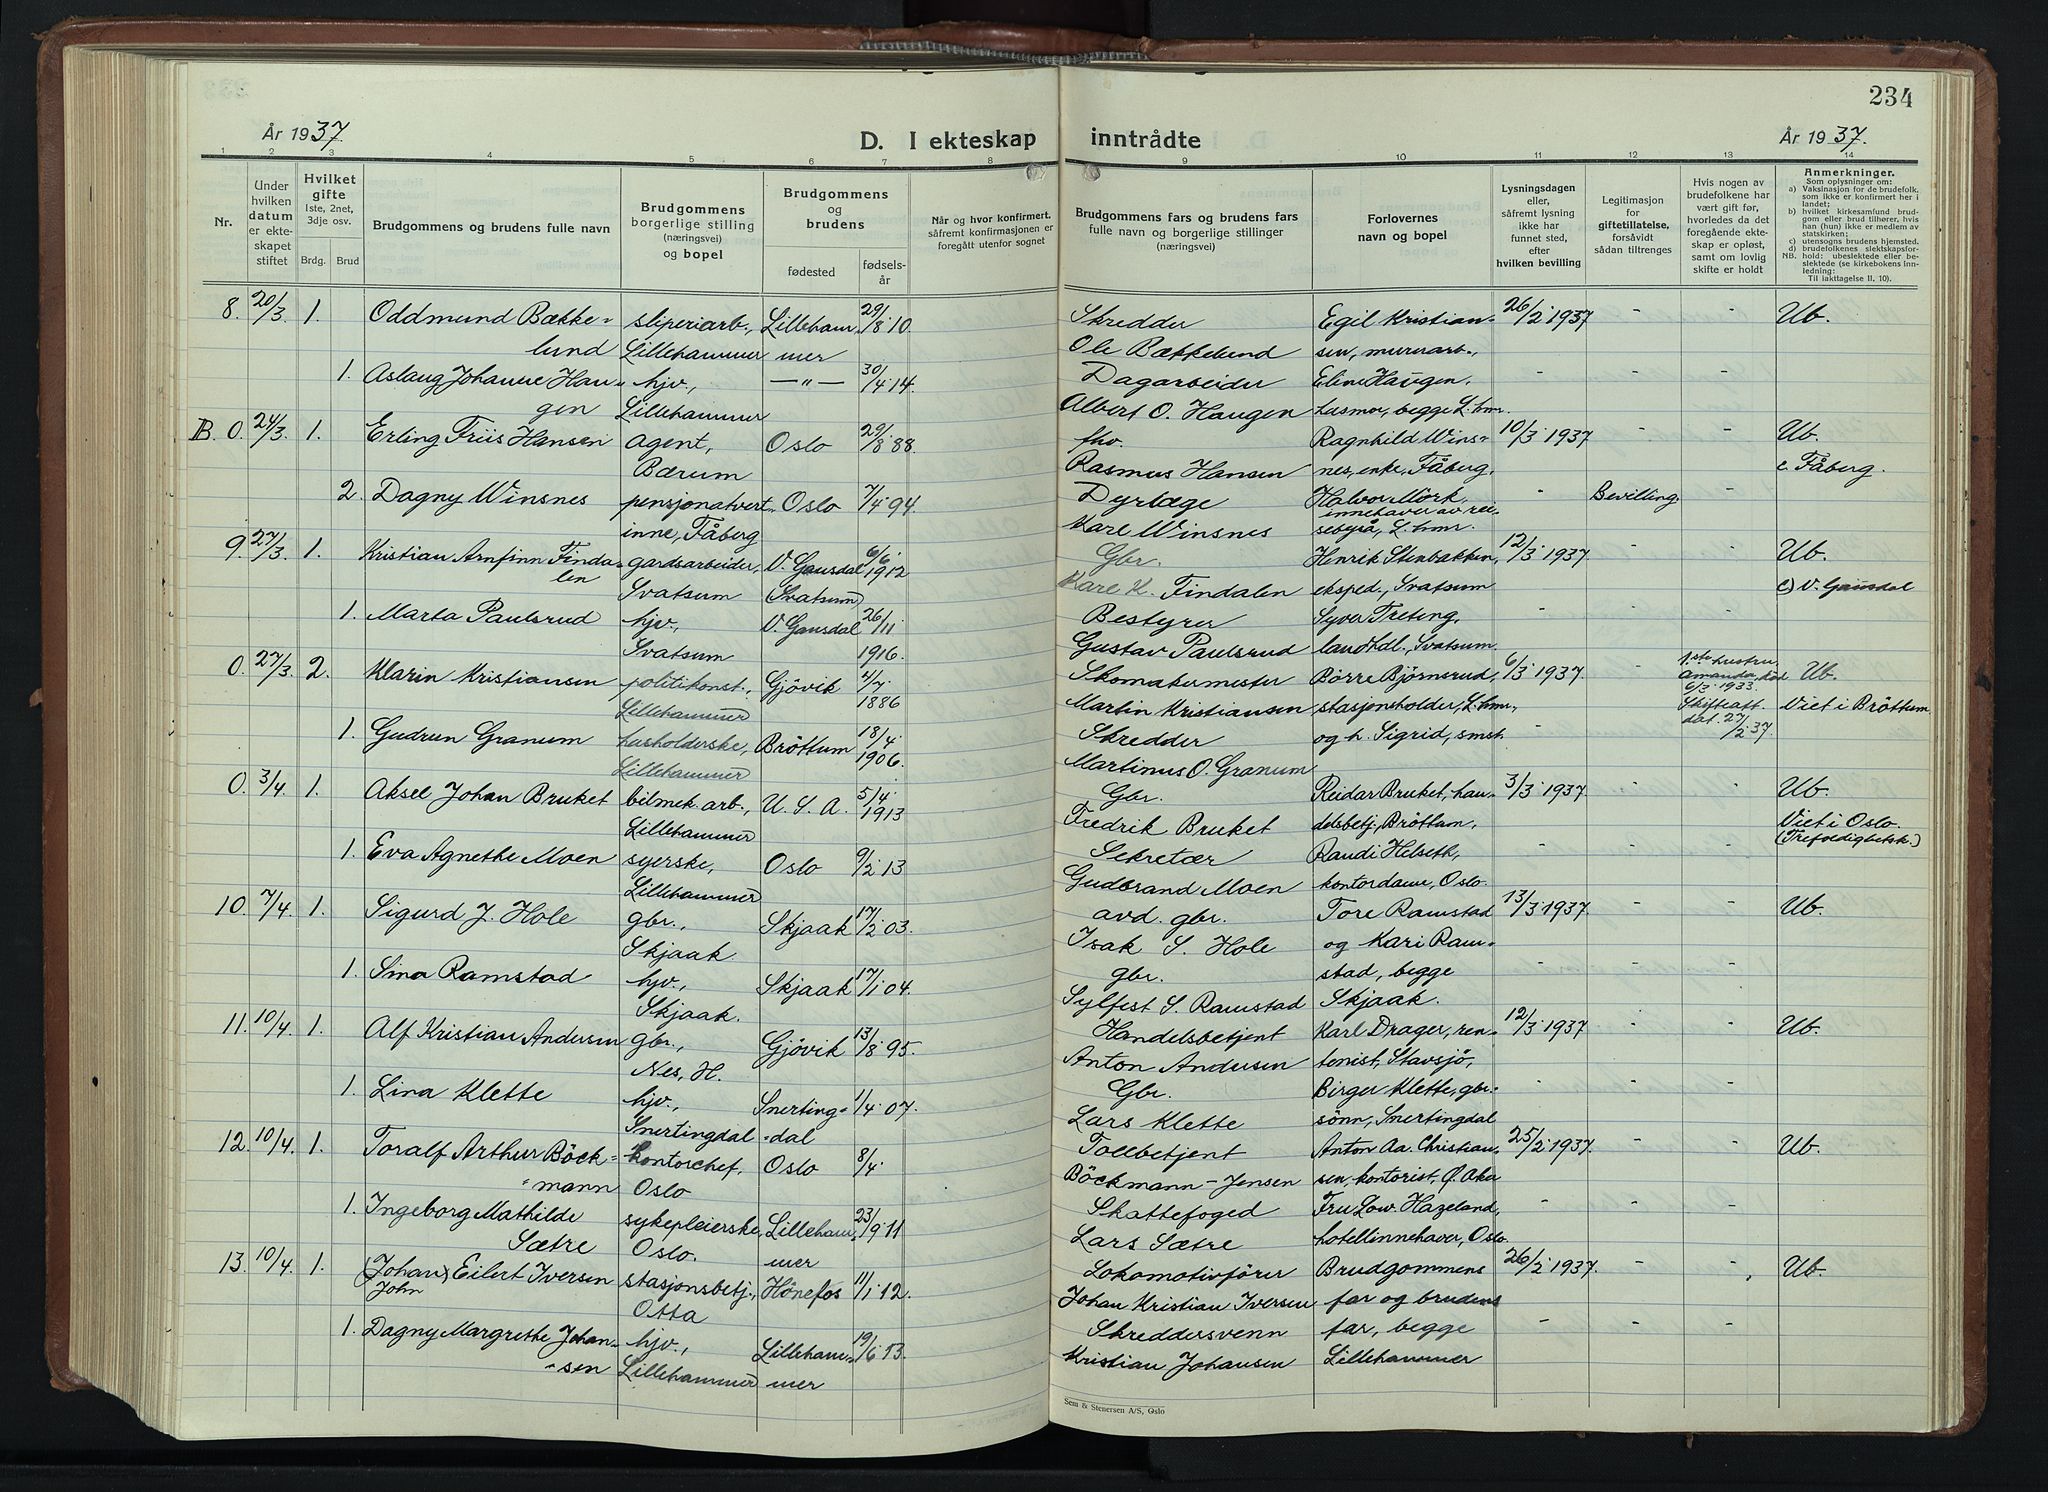 234
År 1937.
D. I ekteskap inntrådte
År 1937.
1 2 3 4 5 6 7 8 9 10 11 12 13 14
Nr.
Under hvilken datum er ekteskapet stiftet
Hvilket gifte
1ste, 2net, 3dje osv.
Brdg. Brud
Brudgommens og brudens fulle navn
Brudgommens borgerlige stilling (næringsvei) og bopel
Brudgommens og brudens
fødested
fødselsår
Når og hvor konfirmert, såfremt konfirmasjonen er foregått utenfor sognet
Brudgommens fars og brudens fars fulle navn og borgerlige stillinger (næringsvei)
Forlovernes navn og bopel
Lysningsdagen eller, såfremt lysning ikke har funnet sted, efter hvilken bevilling
Legitimasjon for giftetillatelse, forsåvidt sådan tiltrenges
Hvis nogen av brudefolkene har vært gift før, hvorledes da det foregående ekteskap er opløst, samt om lovlig skifte er holdt
Anmerkninger.
Som oplysninger om:
a) Vaksinasjon for de brudefolk, som ikke er konfirmert her i landet;
b) hvilket kirkesamfund brudgom eller brud tilhører, hvis han (hun) ikke er medlem av statskirken;
c) utensogns brudens hjemsted.
d) brudefolkenes slektskapsforhold: ubeslektede eller beslektede (se kirkebokens innledning:
NB.
Til iakttagelse II. 10).
8. 20/3. 1. Oddmund Bække- sliperiarb., Lilleham- 29/8 10 Skredder Egil Kristian- 26/2 1937 - - Ub.
lund Lillehammer mer Ole Bækkelund sen, murerarb.,
1. Aslaug Johanne Hau- hjv., —"— 30/4 14. Dagarbeider Eline Haugen, - - -
gen Lillehammer Albert O. Haugen husmor, begge L.hmr.
B. 0. 24/3. 1. Erling Friis Hansen agent, Oslo 29/8 88. fhv. Ragnhild Wins- 10/3 1937 - - Ub.
Bærum Rasmus Hansen nes, enke, Fåberg, c. Fåberg.
2. Dagny Winsnes pensjonatvert- Oslo 7/4 94. Dyrlæge Halvor Mörk, - Bevilling. -
innehaver av rei-
inne, Fåberg Kare Winsnes sebyrå, L.hmr.
9. 27/3. 1. Kristian Arnfinn Finda- gardsarbeider, V. Gausdal 6/6 1912 Gbr. Henrik Stenbakken, 12/3 1937 - - Ub.
len Svatsum (Svatsum) Kare K. Findalen eksped., Svatsum c) V. Gausdal
1. Marta Paulsrud hjv., V. Gausdal 26/11 1916. Bestyrer Syver Treting, - - -
Svatsum Gustav Paulsrud landhdl., Svatsum.
0. 27/3. 2. Klarin Kristiansen politikonst., Gjövik 4/7 1886 Skomakermester Börre Björnsrud, 6/3 1937. - 1.ste hustru Amanda, död 6/3 1933. Skifteatt. dat. 27/2 37. Ub.
Lillehammer Martin Kristiansen stasjonsholder, L.hmr., Viet i Bröttum
1. Gudrun Granum husholderske, Bröttum 18/4 1906. Skredder og h. Sigrid, smst. -
Lillehammer Martinus O. Granum
0. 3/4. 1. Aksel Johan Bruket bilmek. arb., U. S. A. 5/4 1913 Gbr. Reidar Bruket, han- 3/3 1937. - - Ub.
Lillehammer Fredrik Bruket delsbetj., Bröttum, Viet i Oslo.
1. Eva Agnethe Moen syerske, Oslo 9/2 13 Sekretær Randi Helseth, - - - (Trefoldighetsk.)
Lillehammer Gudbrand Moen kontordame, Oslo.
10. 7/4. 1. Sigurd J. Hole gbr., Skjaak 17/2 03. avd. gbr. Tore Ramstad 13/3 1937. - - Ub.
Skjaak. Isak S. Hole og Kari Ram-
1. Sina Ramstad hjv., Skjaak 17/1 04. gbr. stad, begge - - -
Skjaak. Sylfest S. Ramstad Skjaak.
11. 10/4. 1. Alf Kristian Andersen gbr., Gjövik 13/8 95. Handelsbetjent Karl Drager, ren- 12/3 1937 - - Ub.
Nes, H. Anton Andersen tenist, Stavsjö,
1. Lina Klette hjv., Snerting- 1/4 07. Gbr. Birger Klette, gbr.- - - -
Snertingdal -dal Lars Klette sönn, Snertingdal
12. 10/4. 1. Toralf Arthur Böck- kontorchef, Oslo 8/4. Tollbetjent Anton Aa. Christian- 25/2 1937. - - Ub.
mann Oslo Böckmann-Jensen sen, kontorist, Ø. Aka
1. Ingeborg Mathilde sykepleierske, Lilleham- 23/9 11 Skattefoged Fru Low. Hazeland, - - -
Sætre Oslo. mer Lars Sætre hotellinnehaver, Oslo.
13. 10/4. 1. (Johan) Eilert Iversen stasjonsbetj., Hönefos 11/1 12. Lokomotivförer Brudgommens 26/2 1937. - - Ub.
John Otta Johan Kristian Iversen far og brudens
1. Dagny Margrethe Johan- hjv., Lilleham- 19/6 13. Skreddersvenn far, begge - - -
-sen Lillehammer mer Kristian Johansen Lillehammer
Sem & Stenersen A/S, Oslo